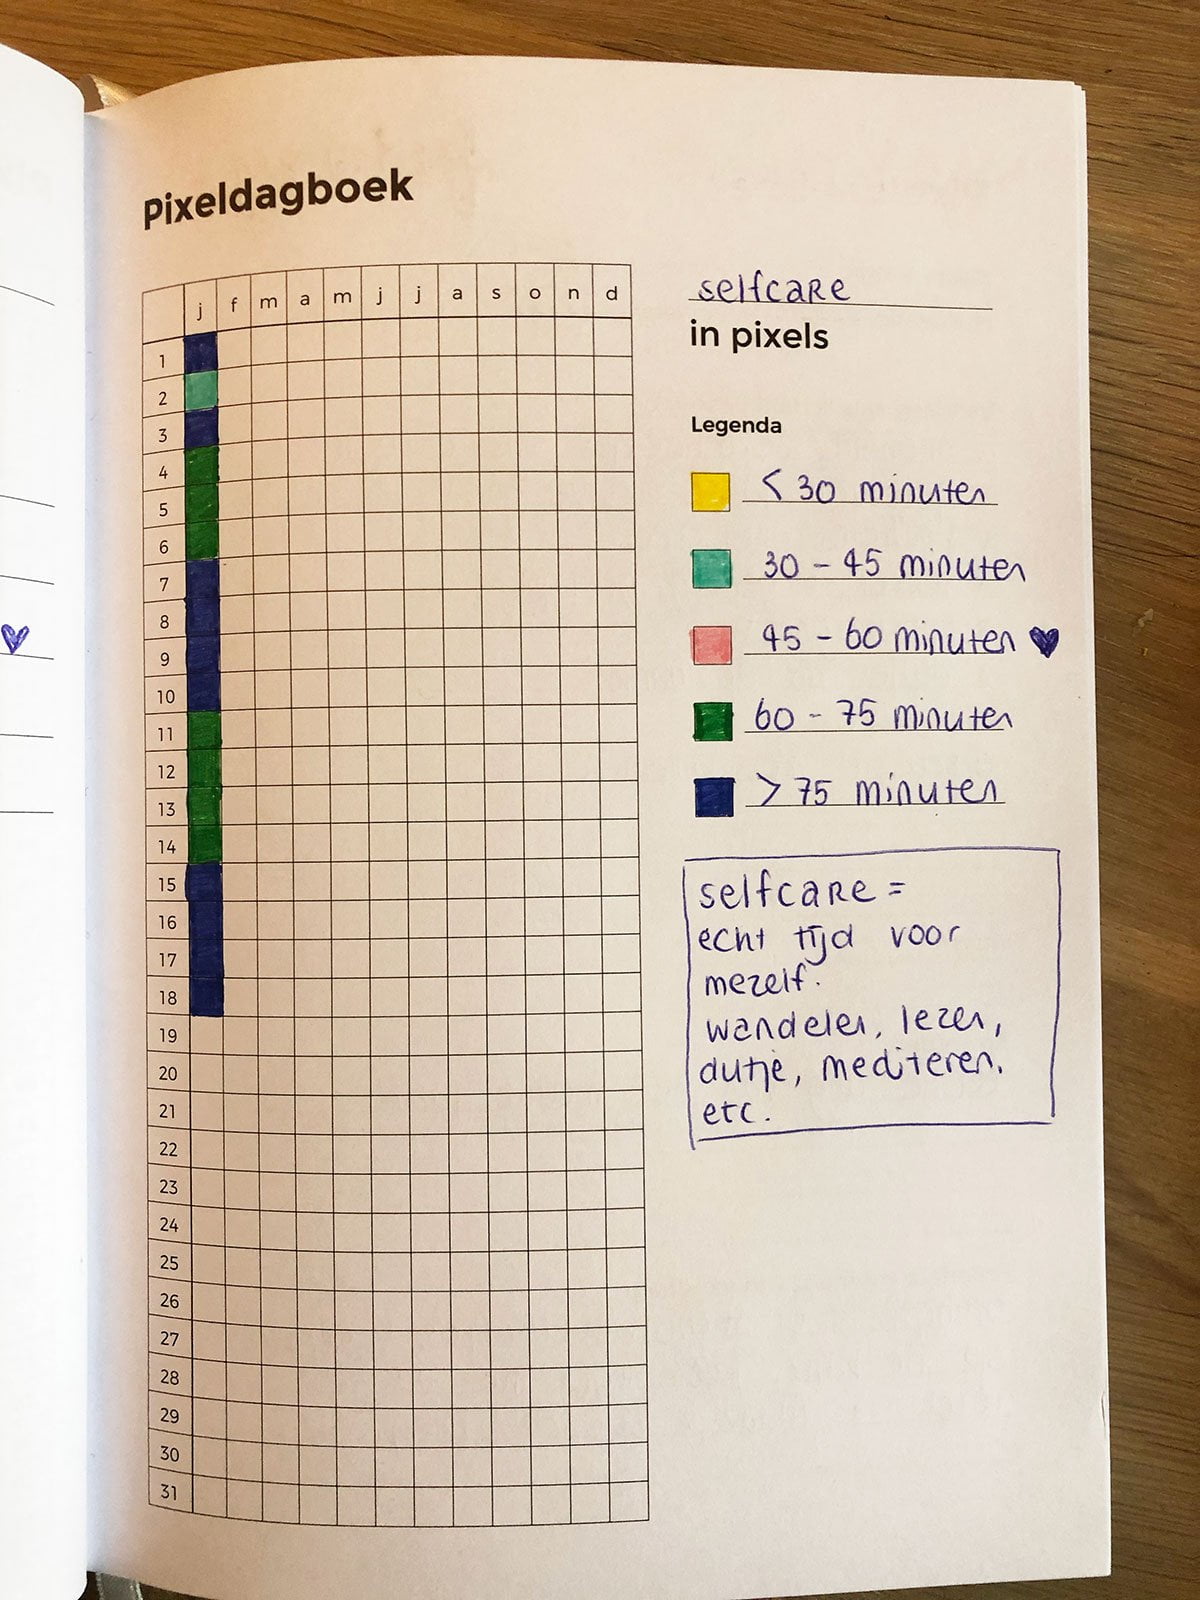 Pixeldagboek
j f m a m j j a s o n d
1
2
3
4
5
6
7
8
9
10
11
12
13
14
15
16
17
18
19
20
21
22
23
24
25
26
27
28
29
30
31
selfcare
in pixels
Legenda
< 30 minuten
30 - 45 minuten
45 - 60 minuten
60 - 75 minuten
> 75 minuten
selfcare =
echt tijd voor
mezelf.
wandelen, lezen,
dutje, mediteren.
etc.